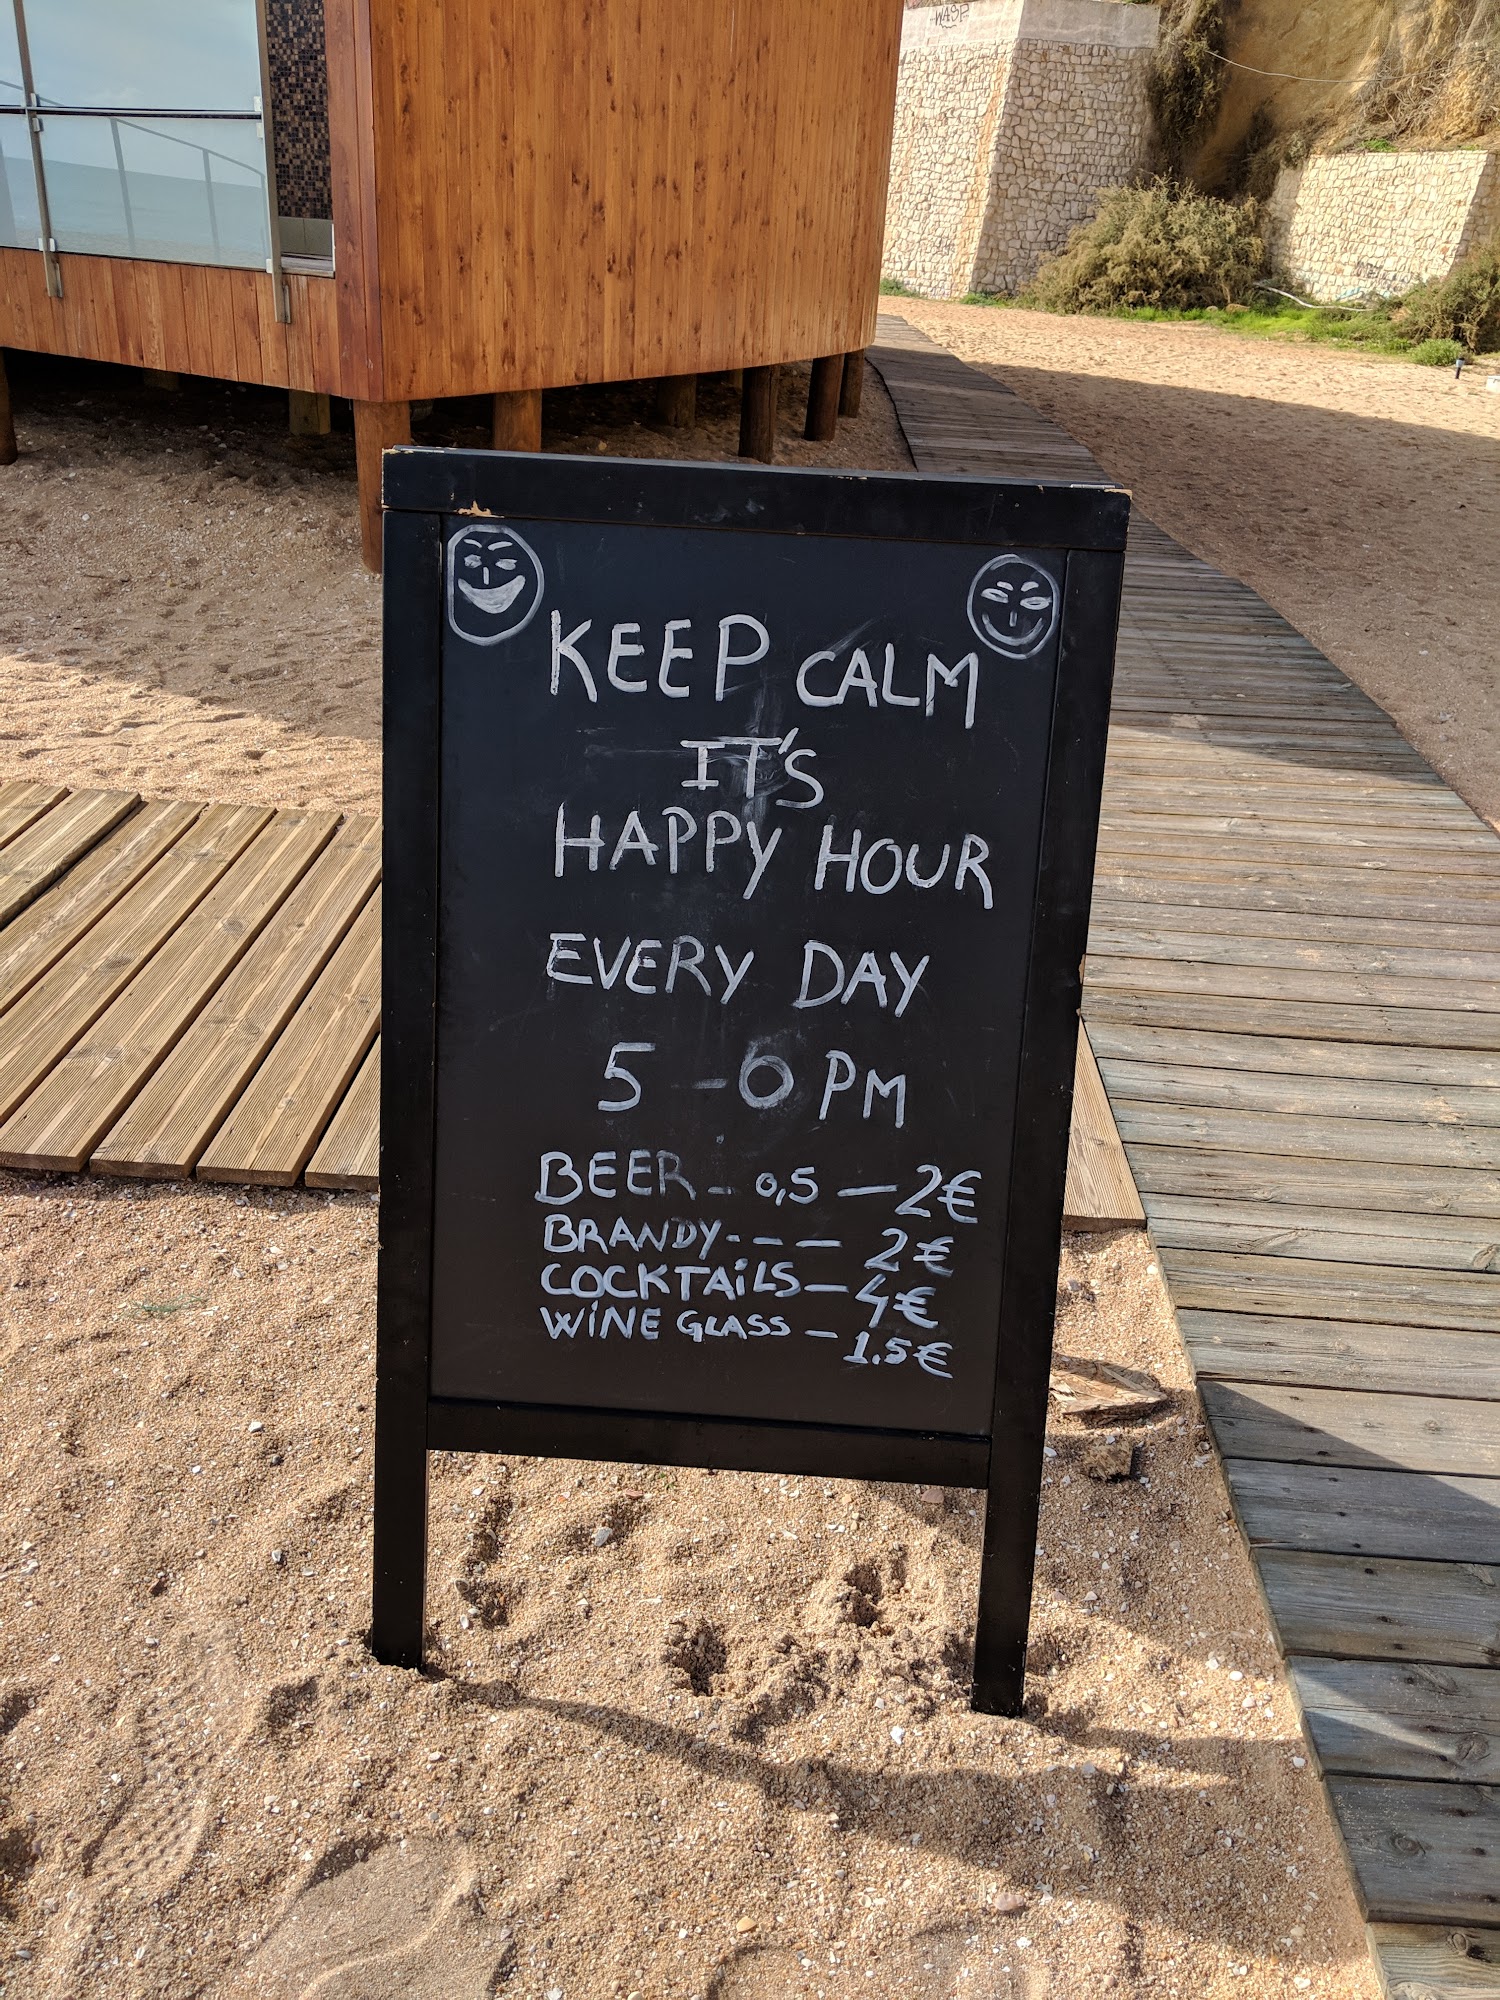 WASP
KEEP CALM
IT'S
HAPPY HOUR
EVERY DAY
5 - 6 PM
BEER - 0,5 - 2€
BRANDY --- 2€
COCKTAiLS - 4€
WiNE GLASS - 1.5€